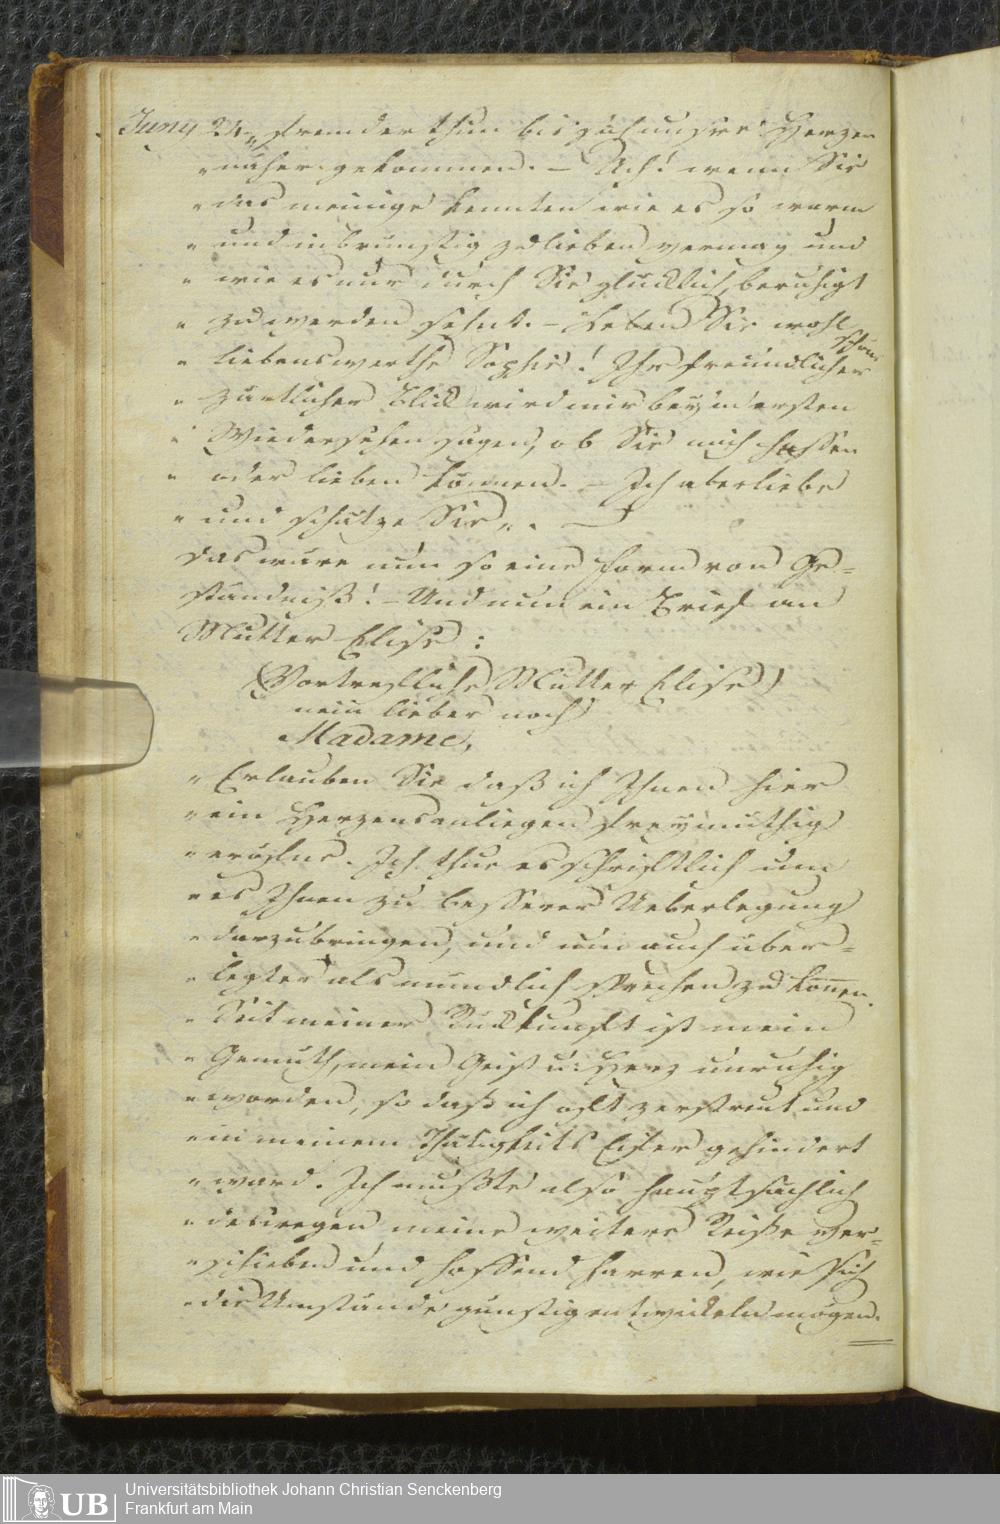 Juny 24. „ fremder thun bis sich unsre Herzen
„ näher gekommen. – Ach! wenn Sie
„ das meinige kennten wie es so warm
„ und inbrünstig zu lieben vermag und
„ wie es nur durch Sie glücklich, beruhigt
„ zu werden sehnt. – Leben Sie wohl
„ liebenswerthe Sophie! Ihr freundlicher
„ zärtlicher Blick wird mir beym ersten
„ Wiedersehen sagen, ob Sie mich hassen
„ oder lieben können. – Ich aber liebe
„ und schätze Sie „. –
Das wäre nun so eine Form von Ge=
ständniß! – Und nun ein Brief an
Mutter Elise:
(Vortreffliche Mutter Elise)
nein lieber noch
Madame,
„ Erlauben Sie daß ich Ihnen hier
„ ein Herzensanliegen freymüthig
„ eröffne. Ich thue es schriftlich um
„ es Ihnen zu besserer Ueberlegung
„ darzubringen, und um auch über=
„ legter als mündlich sprechen zu können.
„ Seit meiner Rückkunft ist mein
„ Gemüth, mein Geist u: Herz unruhig
„ worden, so daß ich oft zerstreut und
„ in meinem Thätigkeits Eifer gehindert
„ ward. Ich mußte also hauptsächlich
„ deswegen meine weitere Reise ver=
„ schieben und hoffend harren, wie sich
„ die Umstände günstig entwickeln mögen.
UB
Universitätsbibliothek Johann Christian Senckenberg
Frankfurt am Main